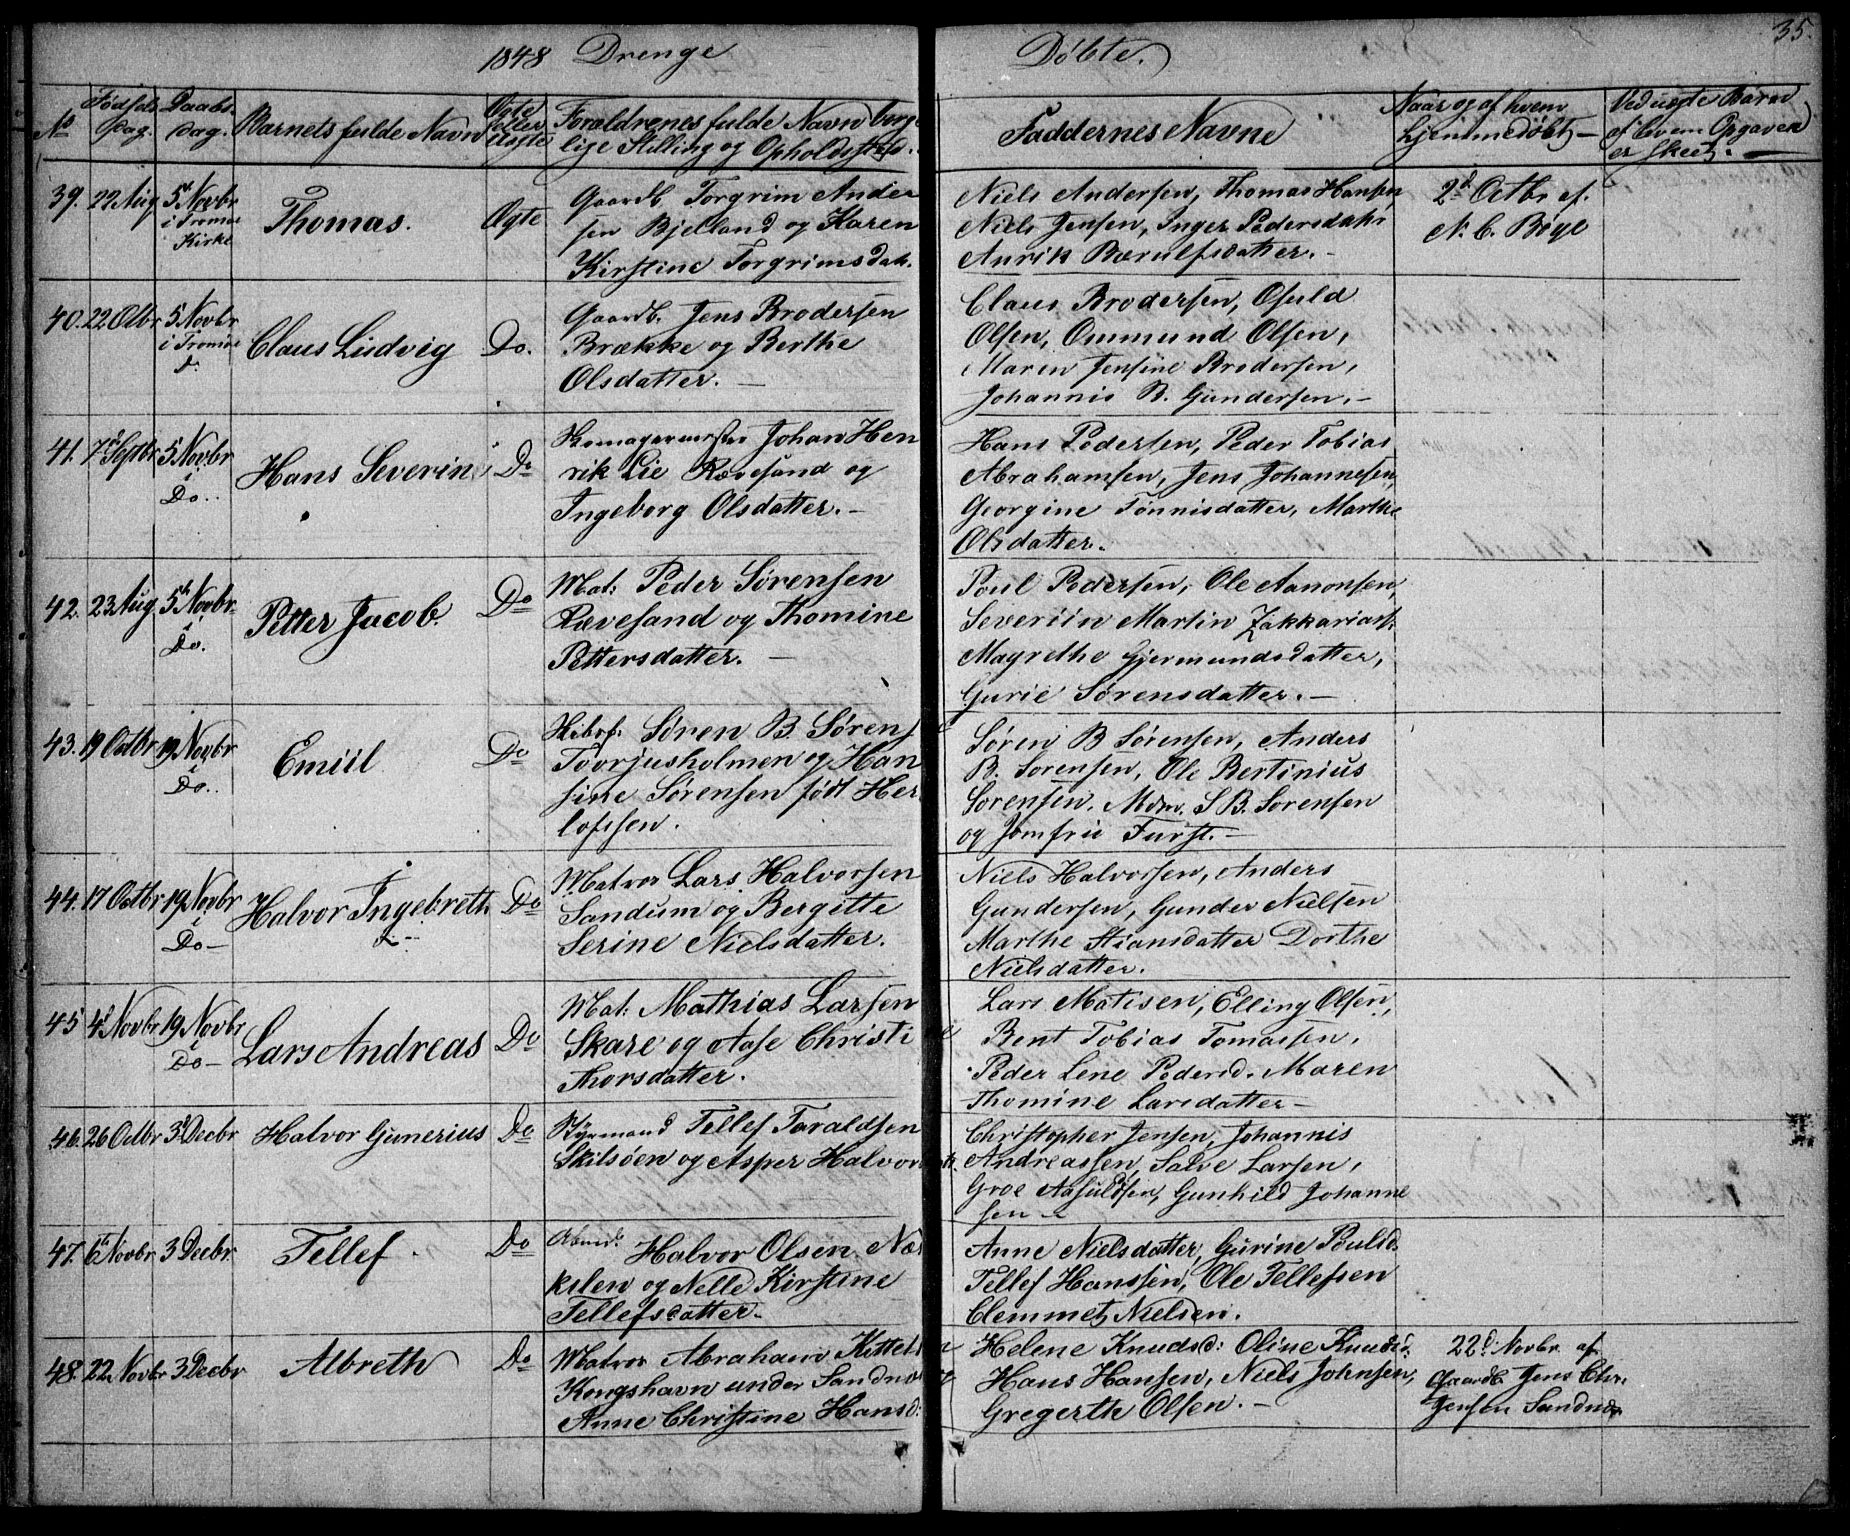 35.
1848 Drenge Døbte.
No Fødsels Dag. Daabs Dag. Barnets fulde Navn Ægte eller Uægte Forældrenes fulde Navn borgerlige Stilling og Opholdssted. Faddernes Navne Naar og af hvem hjemmedøbt Ved uægte Barn af hvem Opgaven er skeet.
39. 29 Aug 5t Novbr i Tromøe Kirke Thomas. Ægte
Gaardb. Torgrim Ander
sen Bjelland og Karen
Kirstine Torgrimsdatt.
Niels Andersen, Thomas Hansen
Niels Jensen, Inger Pedersdatr
Anrik Bærulfsdatter.
2d Octbr af
N. C. Bøge
40. 22 Otbr 5 Novbr i Tromøe Do Claus Ludvig Do.
Gaardb. Jens Brodersen
Brække og Berthe
Olsdatter. —
Claus Brodersen, Osuld
Olsen, Ommund Olsen,
Maren Jensine Brodersen,
Johannis B. Gundersen. —
41. 7d Septbr 5t Novbr i Do. Hans Severin Do
Skomagermester Johan Hen
rik Lie Rævesand og
Ingeborg Olsdatter. —
Hans Pedersen, Peder Tobias
Abrahamsen, Jens Johannesen,
Georgine Tønnisdatter, Marthe
Olsdatter.
42. 23 Aug 5t Novbr i Do. Petter Jacob. Do
Mat: Peder Sørensen
Rævesand og Thomine
Pettersdatter. —
Poul Pedersen, Ole Aanonsen,
Severiin Martin Zakkarias.
Magrethe Gjermundsdatter,
Gurie Sørensdatter. —
43. 19 Octbr 19 Novbr i Do. Emiil Do
Skibsf. Søren B. Sørens
Toorjusholmen og Han
sine Sørensen født Her
lofssen.
Søren B Sørensen, Anders
B. Sorensen, Ole Bertinius
Sorensen. Mdm. S B. Sorensen
og Jomfru Furst. —
44. 17 Octbr 19 Novbr i Do — Halvor Ingebreth. Do
Matros Lars Halvorsen
Sandum og Bergitte
Serine Nielsdatter.
Niels Halvorsen, Anders
Gundersen, Gunder Nielsen
Marthe Stiansdatter Dorthe
Nielsdatter.
45 4d Novbr 19 Novbr i Do — Lars Andreas Do
Mat: Mathias Larsen
Skare og Aase Christi
Thorsdatter.
Lars Matisen, Elling Olsen,
Bent Tobias Tomassen,
Peder Lene Pedersd. Maren
Thomine Larsdatter —
46. 26 Octbr 3d Decbr Halvor Gunerius Do
Styrmand Tellef Taraldsen
Skilsøen og Asper Halvors
Christopher Jensen, Johannis
Andreassen, Salve Larsen,
Groe Aasuldsen, Gunhild Johanne
sen —
47. 6t Novbr 3 Decbr. Tellef. Do
Arbmd. Halvor Olsen Næs
kilen og Nelle Kirstine
Tellefsdatter.
Anne Nielsdatter, Gurine Poulsd.
Tellef Hanssen, Ole Tellefsen
Clemmet Nielsen.
48. 22 Novbr 3 Decbr Albreth Do
Matros Abraham Kittels
Kongshavn under Sandnæs
Anne Christine Hansd:
Helene Knudsd: Oline Knudsd.
Hans Hansen, Niels Johnsen,
Gregerth Olsen. —
22d Novbr af
Gaardb. Jens Chr.
Jensen Sandnæs